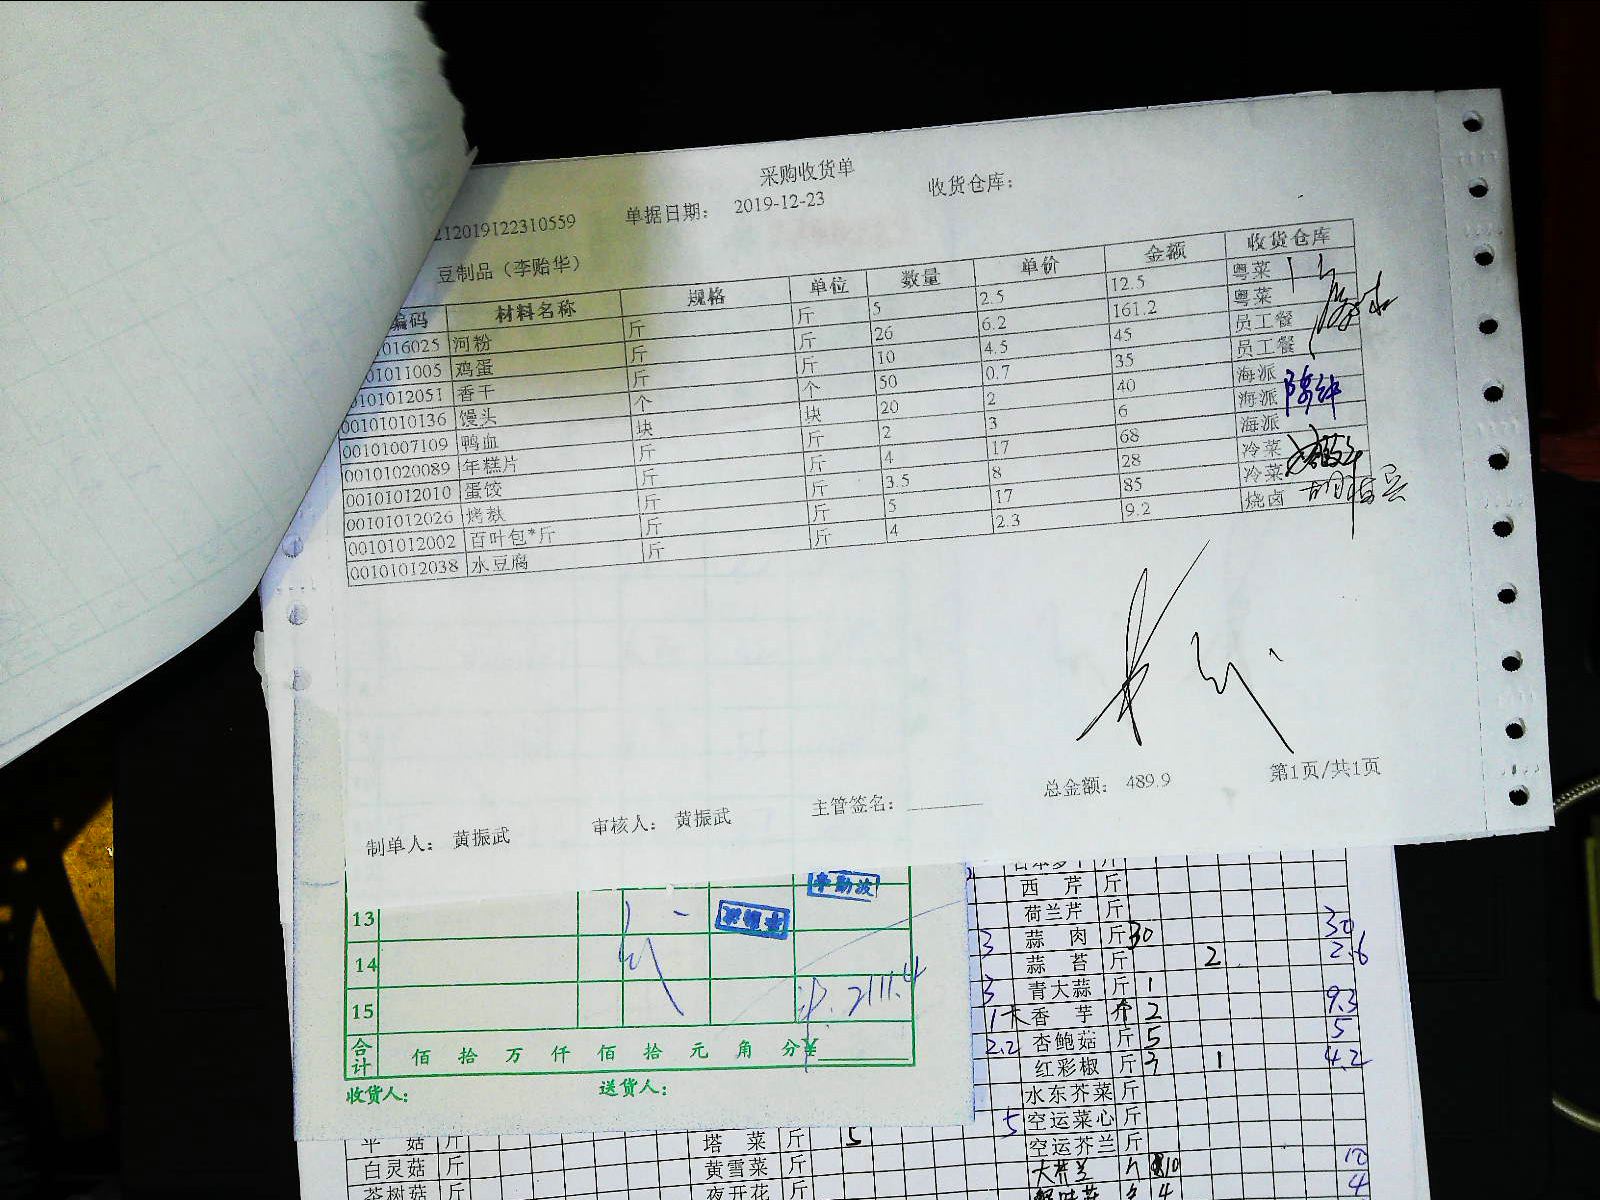 采购收货单
212019122310559 单据日期： 2019-12-23 收货仓库：
豆制品（李贻华）
编码 材料名称 规格 单位 数量 单价 金额 收货仓库
016025 河粉 斤 斤 5 2.5 12.5 粤菜
01011005 鸡蛋 斤 斤 26 6.2 161.2 粤菜
0101012051 香干 斤 斤 10 4.5 45 员工餐
00101010136 馒头 个 个 50 0.7 35 员工餐
00101007109 鸭血 块 块 20 2 40 海派
00101020089 年糕片 斤 斤 2 3 6 海派
00101012010 蛋饺 斤 斤 4 17 68 海派
00101012026 烤麸 斤 斤 3.5 8 28 冷菜
00101012002 百叶包*斤 斤 斤 5 17 85 冷菜
00101012038 水豆腐 斤 斤 4 2.3 9.2 烧卤
总金额： 489.9 第1页/共1页
制单人： 黄振武 审核人： 黄振武 主管签名：
13
14
15
合计 佰 拾 万 仟 佰 拾 元 角 分¥
收货人： 送货人：
2111.4
西芹 斤
荷兰芹 斤
3 蒜肉 斤 30 30
蒜苔 斤 2 2.6
3 青大蒜 斤 1
香芋 2 9.3
2.2 杏鲍菇 斤 5 5
红彩椒 斤 3 1 4.2
水东芥菜 斤
5 空运菜心 斤
平菇 斤 塔菜 斤 5 空运芥兰 斤
白灵菇 斤 黄雪菜 斤 10
茶树菇 斤 夜开花 斤 4 4